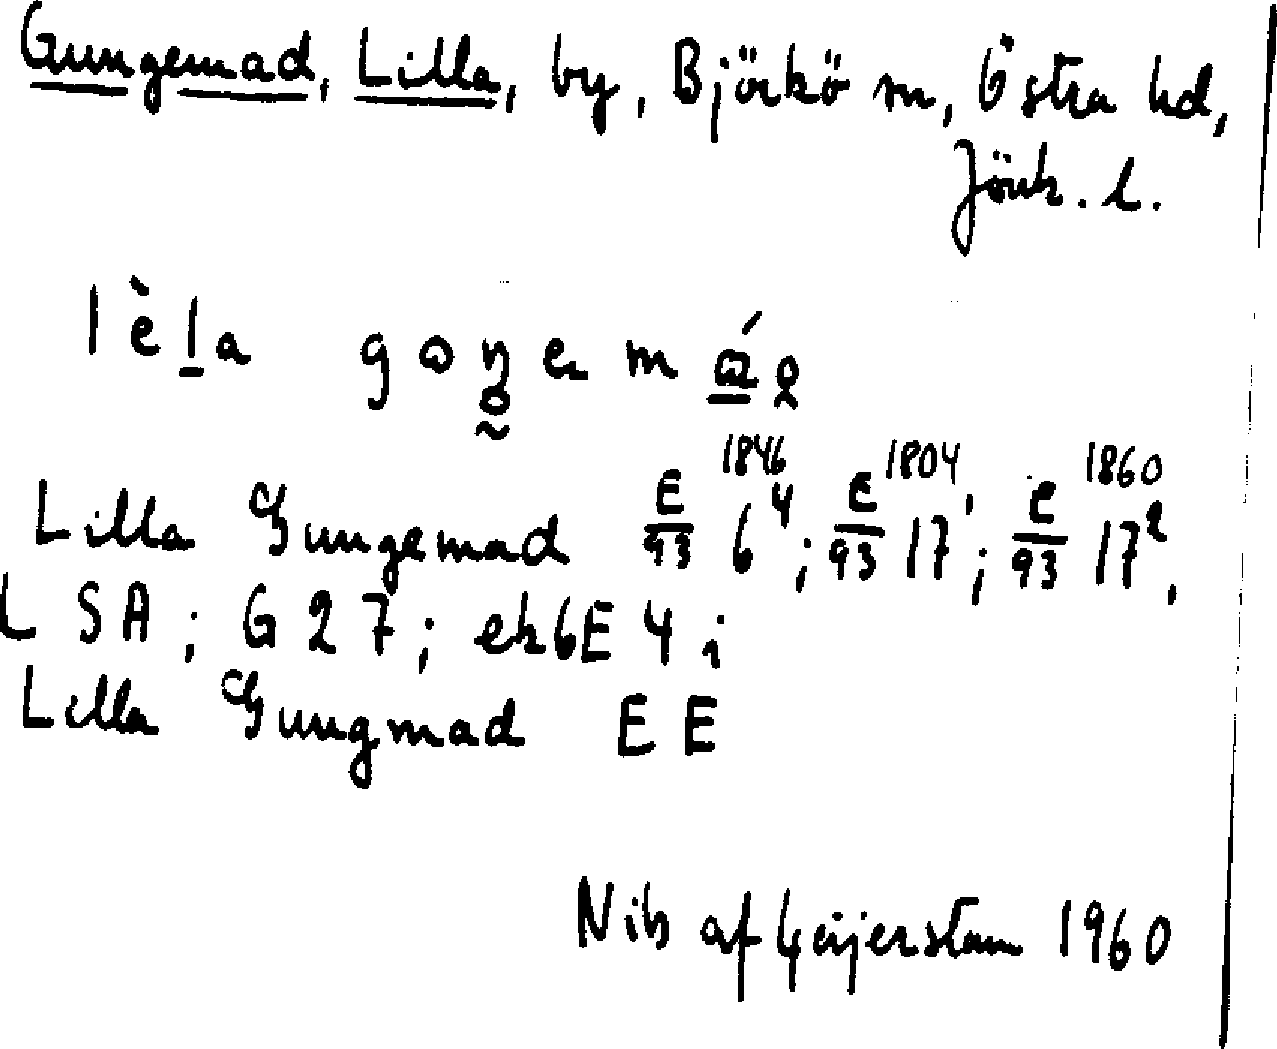 Gungemad, Lilla, by, Björkö sn, Östra hd,
Jönk. l.
lèla
Lilla Gungemad E/93 6⁴ 1846; E/93 17 1804; E/93 17² 1860,
LSA; G 27; ekbE 4 i
Lilla Gungmad EE
Nils af Geijerstam 1960